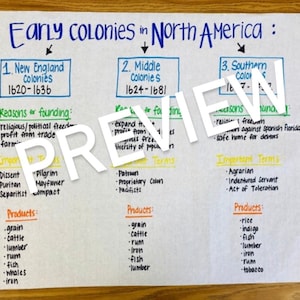 Early Colonies in North America :
1. New England
Colonies
1620-1636
Reasons for founding:
religious/political freedom
profit from trade
Important Terms:
Dissent
Pilgrim
Puritan
Mayflower
Separatist
Compact
Products:
grain
cattle
lumber
rum
fish
whales
iron
2. Middle
Colonies
1624-1681
Reasons for founding:
expand
profit from
Important Terms
Patroon
Proprietary Colony
Pacifists
Products:
grain
cattle
lumber
rum
iron
fish
3. Southern
Reasons for founding:
against Spanish Florida
safe home for debtors
Important Terms:
Agrarian
Indentured Servant
Act of Toleration
Products:
rice
indigo
fish
lumber
iron
rum
tobacco
PREVIEW